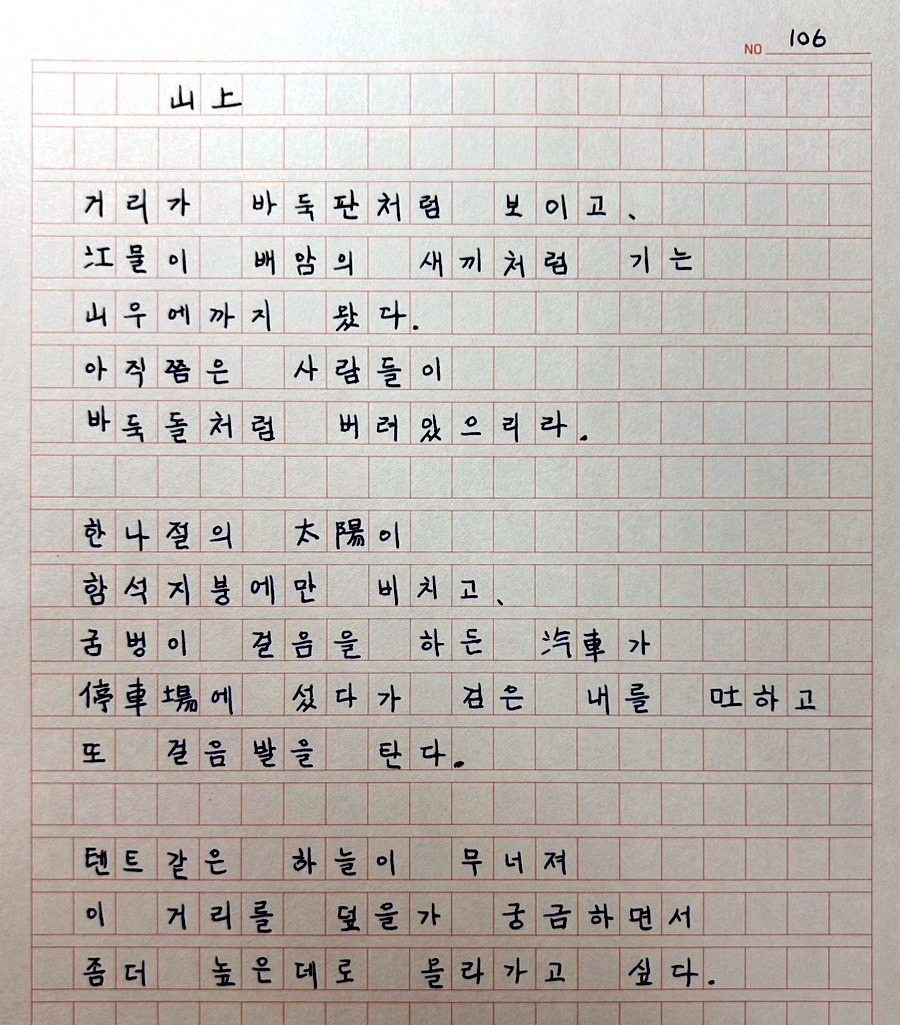 NO 106
山上
거리가 바둑판처럼 보이고、
江물이 배암의 새끼처럼 기는
山우에까지 왔다.
아직쯤은 사람들이
바둑돌처럼 버려있으리라.
한나절의 太陽이
함석지붕에만 비치고、
굼벙이 걸음을 하든 汽車가
停車場에 섰다가 검은 내를 吐하고
또 걸음발을 탄다.
텐트같은 하늘이 무너져
이 거리를 덮을가 궁금하면서
좀더 높은데로 올라가고 싶다.